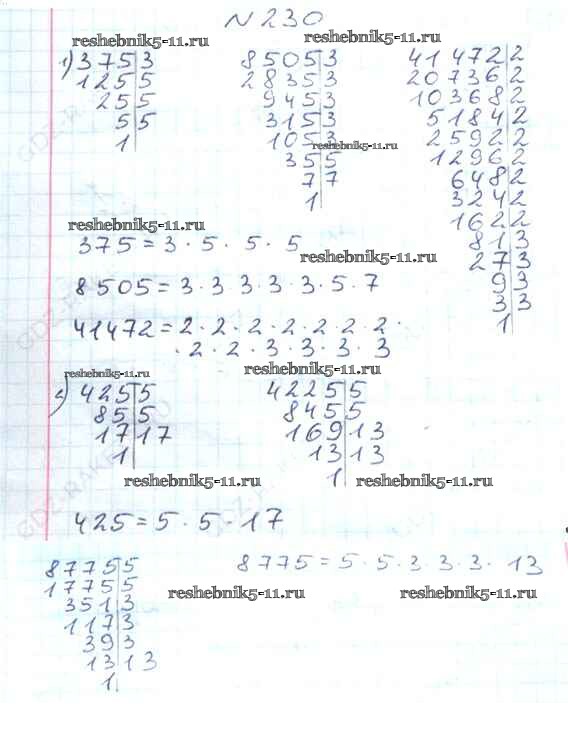 N 230
reshebnik5-11.ru
reshebnik5-11.ru
reshebnik5-11.ru
1) 375|3
125|5
25|5
5|5
1
8505|3
2835|3
945|3
315|3
105|3
reshebnik5-11.ru
35|5
7|7
1
41472|2
20736|2
10368|2
5184|2
2592|2
1296|2
648|2
324|2
162|2
81|3
27|3
9|3
3|3
1
reshebnik5-11.ru
375 = 3 · 5 · 5 · 5
reshebnik5-11.ru
8505 = 3·3·3·3·3·5·7
41472 = 2·2·2·2·2·2·2·
·2·2·3·3·3·3
reshebnik5-11.ru
reshebnik5-11.ru
2) 425|5
85|5
17|17
1
4225|5
845|5
169|13
13|13
1
reshebnik5-11.ru
reshebnik5-11.ru
425 = 5 · 5 · 17
8775|5
1755|5
351|3
117|3
39|3
13|13
1
8775 = 5·5·3·3·3·13
reshebnik5-11.ru
reshebnik5-11.ru